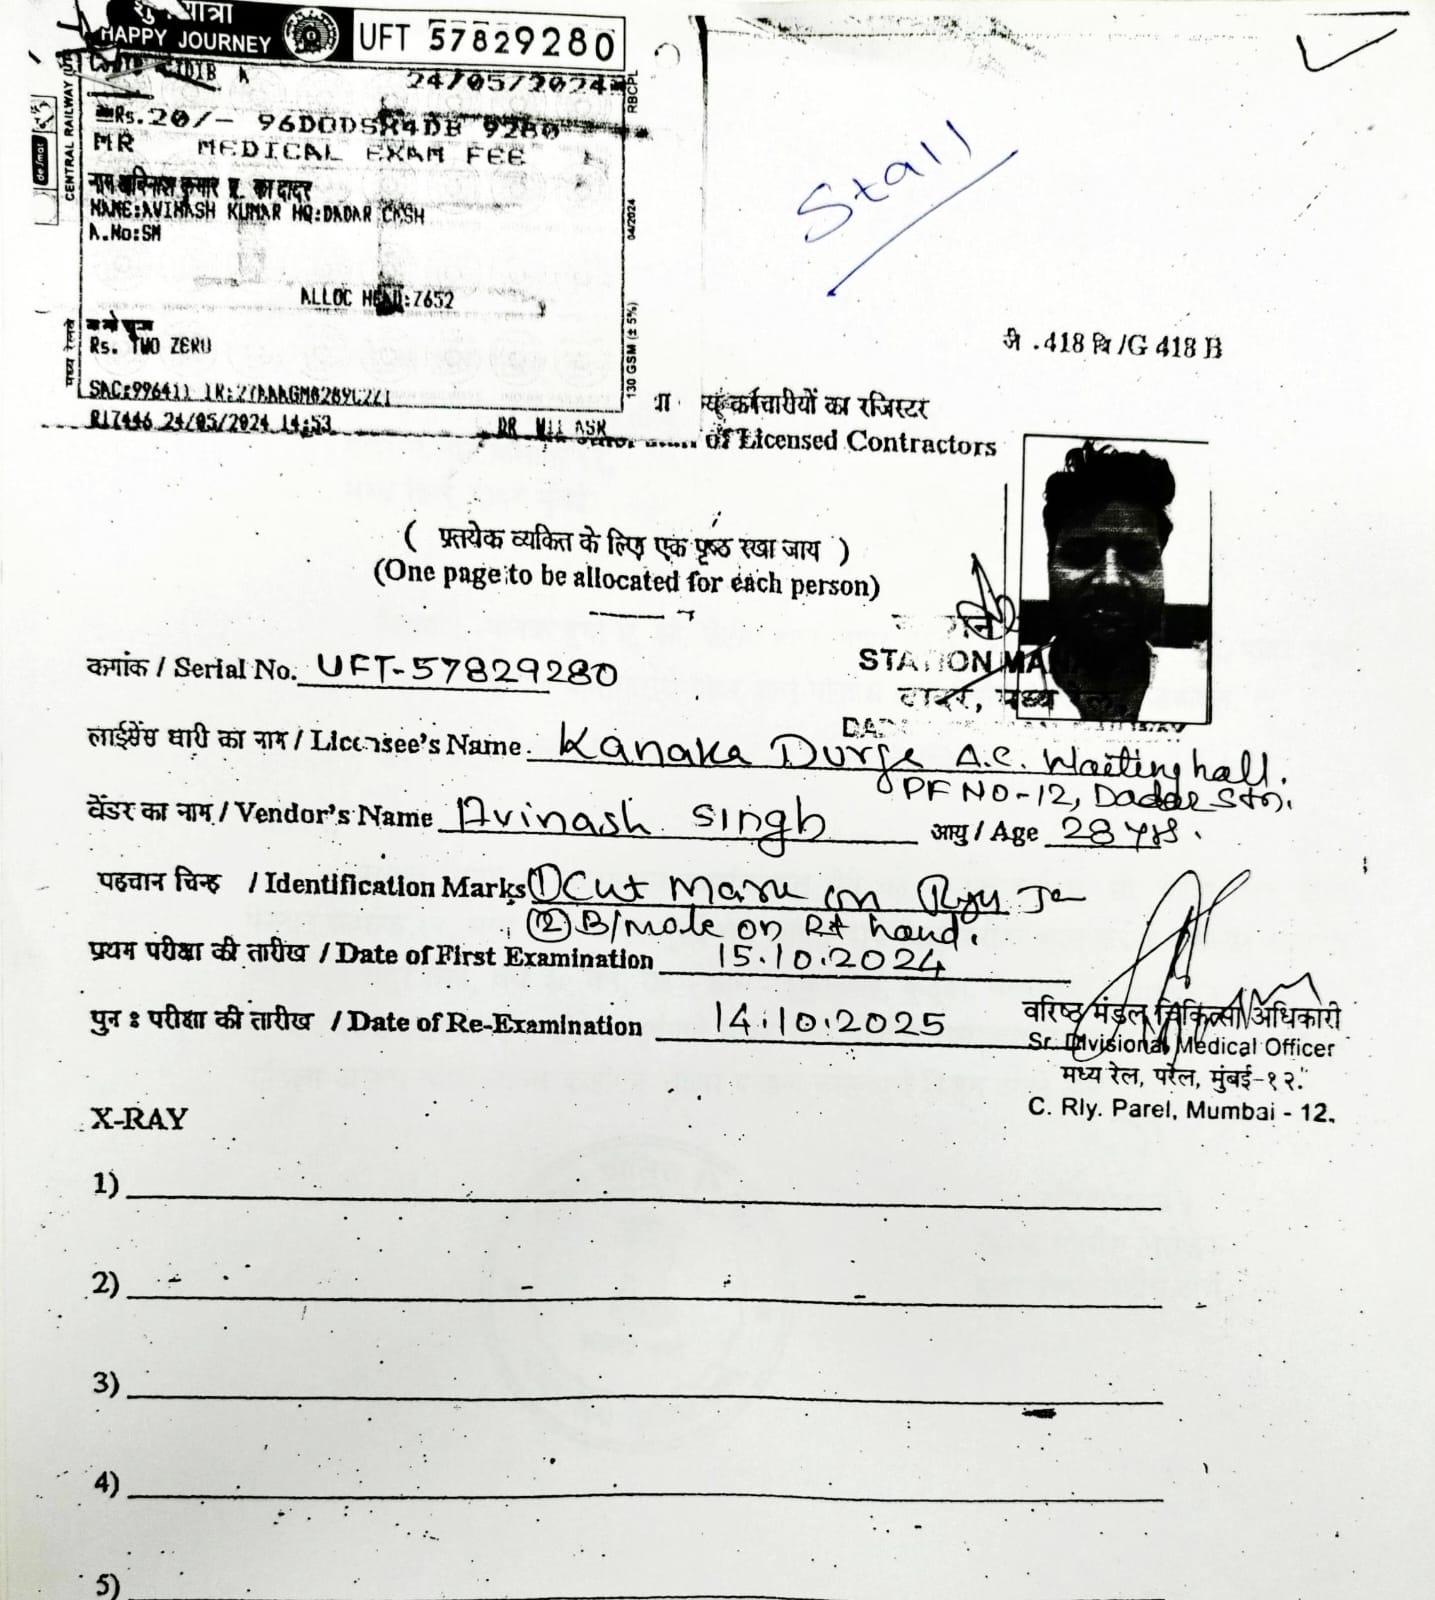 यात्रा
HAPPY JOURNEY
UFT 57829280
24/05/2024
Rs.20/- 96D0D5X4DB 9280
MR MEDICAL EXAM FEE
NAME:AVINASH KUMAR HQ:DADAR CASH
A.No:SM
ALLOC HEAD:7652
Rs. TWO ZERO
R17446 24/05/2024 14:53
CENTRAL RAILWAY
मध्य रेलवे
RBCPL
04/2024
130 GSM (± 5%)
Stall
जी .418 बि /G 418 B
कर्मचारीयों का रजिस्टर
of Licensed Contractors
( प्रतयेक व्यकित के लिए एक पृष्ठ रखा जाय )
(One page to be allocated for each person)
STATION MANA
दादर, मध्य रेल,
कगांक / Serial No. UFT-57829280
लाईसेंस धारी का नाम / Licensee's Name. Kanaka Durga A.C. Waiting hall.
PF NO-12, Dadar Stn.
वेंडर का नाम / Vendor's Name Avinash Singh आयु / Age 28 yrs.
पहचान चिन्ह / Identification Marks ① Cut Mark on
② B/mole on Rt hand.
प्रथम परीक्षा की तारीख / Date of First Examination 15.10.2024
पुन : परीक्षा की तारीख / Date of Re-Examination 14.10.2025
वरिष्ठ मंडल चिकित्सा अधिकारी
Sr. Divisional Medical Officer
मध्य रेल, परेल, मुंबई-१२.
C. Rly. Parel, Mumbai - 12.
X-RAY
1)
2)
3)
4)
5)